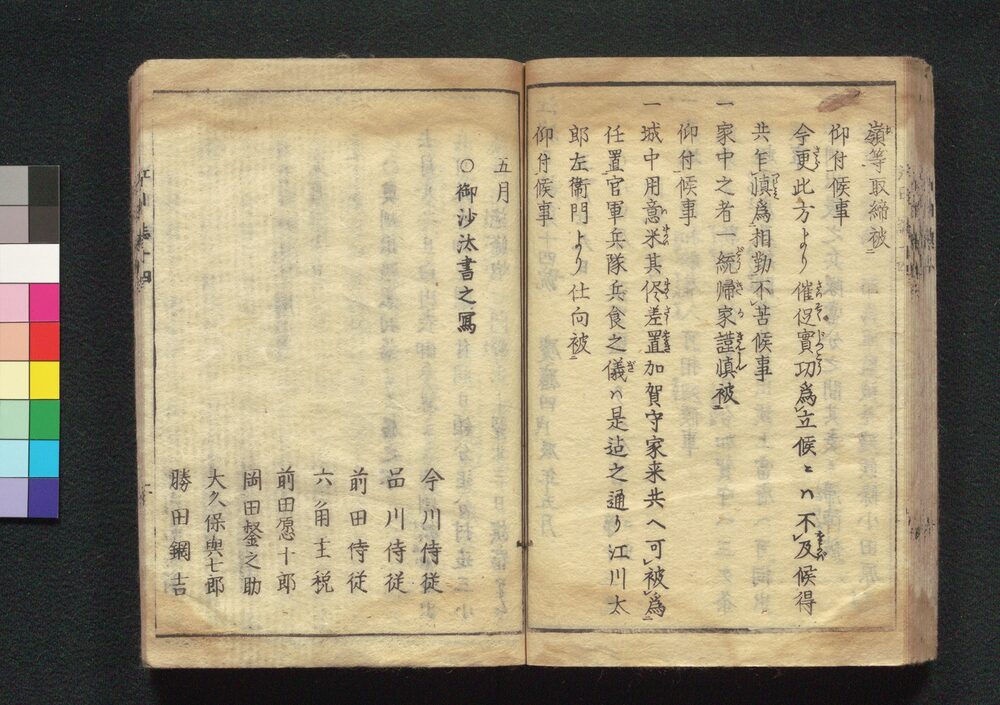 嶺等取締被
仰付候事
今更此方より催促實功為立候とハ不及候得
共乍慎為相勤不苦候事
一家中之者一統帰家謹慎被
仰付候事
一城中用意米其侭差置加賀守家来共へ可被為
任置官軍兵隊兵食之儀ハ是迠之通り江川太
郎左衛門より仕向被
仰付候事
五月
○御沙汰書之寫
今川侍従
品川侍従
前田侍従
六角主税
前田愿十郎
岡田錖之助
大久保與七郎
勝田鋼吉